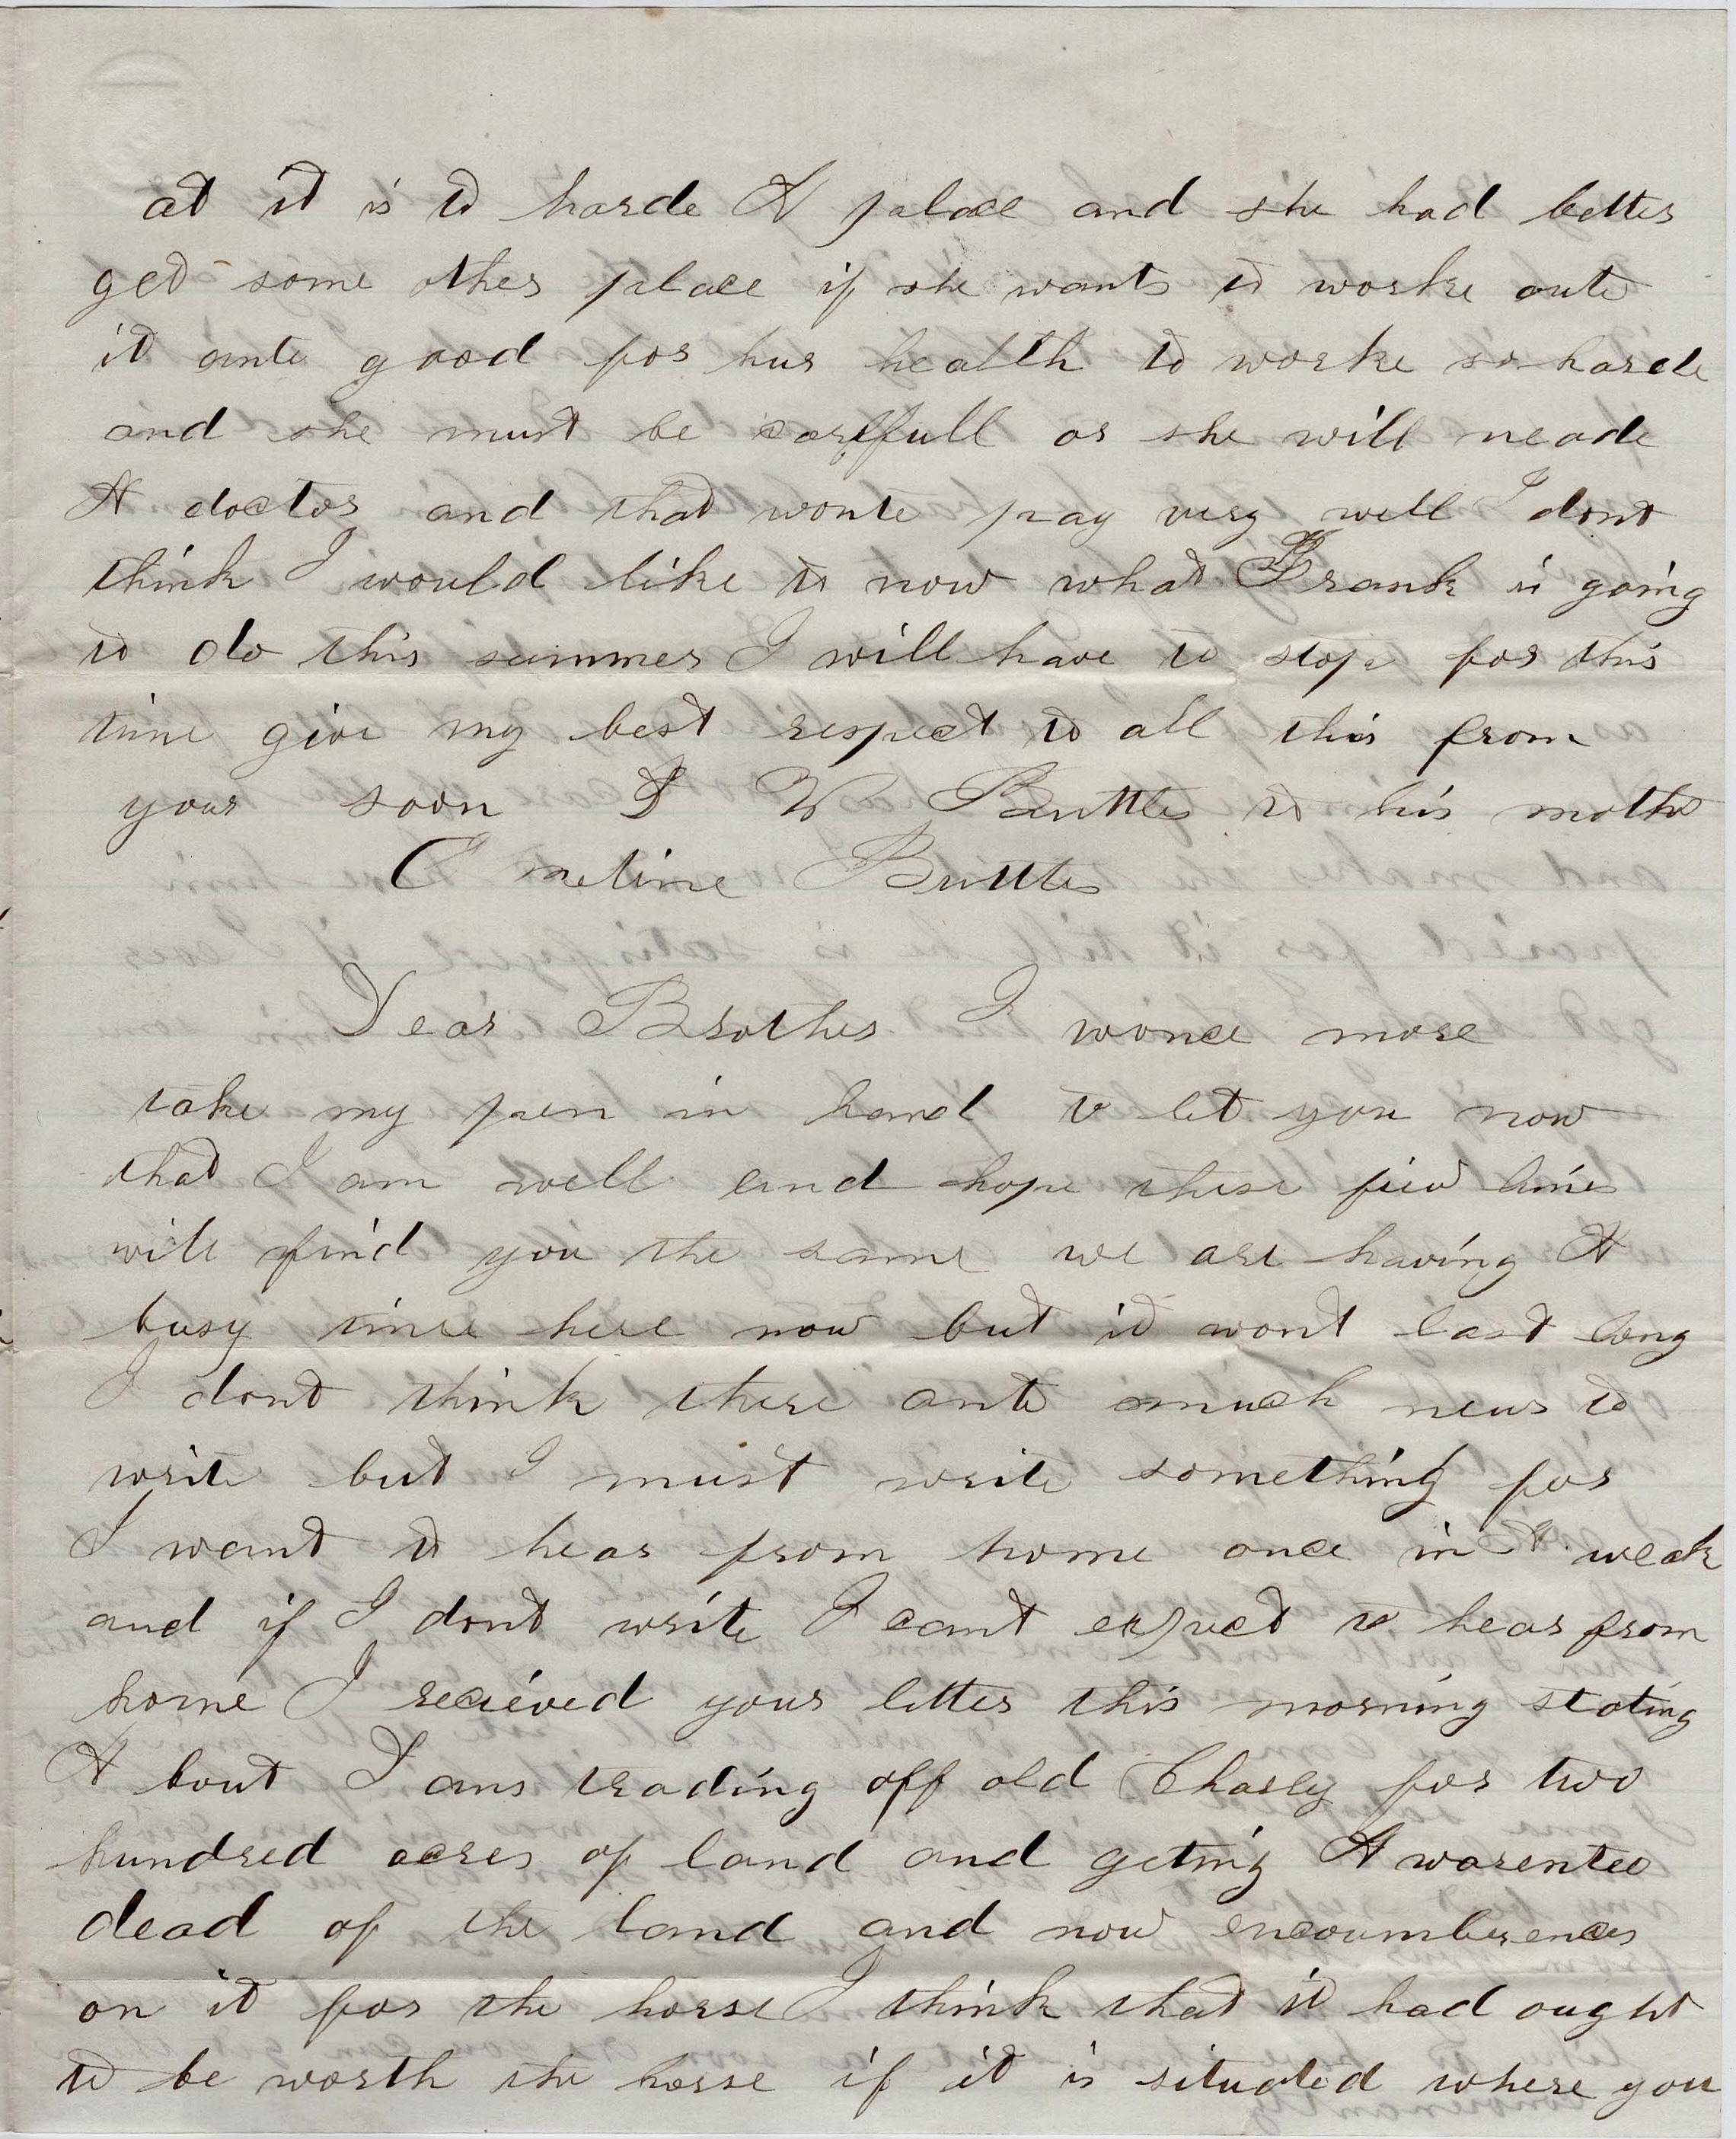 at it is to harde A place and she had better
get some other place if she wants to worke oute
it ante good for hur health to worke so harde
and she must be carffull or she will neade
A doctor and that wonte pay very well I dont
think I would like to now what Frank is going
to do this summer I will have to stope for this
time give my best respect to all this from
your soon W Buttles to his mother
Emeline Buttles
Dear Brother I wonce more
take my pen in hand to let you now
that I am well and hope these fiew lines
will find you the same we are having A
busy time here now but it wont last long
I dont think there ante much news to
write but I must write something for
I want to hear from home once in A weak
and if I dont write I cant expect to hear from
home I recieved your letter this morning stating
A bout I ans trading off old Charly for two
hundred acres of land and geting A warentee
dead of the land and now encoumberences
on it for the horse I think that it had ought
to be worth the horse if it is situated where you